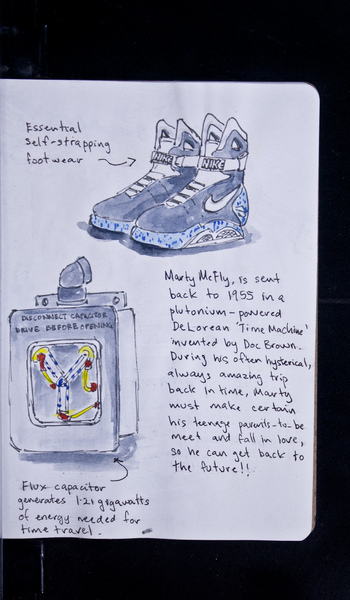 Essential
self-strapping
footwear
NIKE
NIKE
Marty McFly, is sent
back to 1955 in a
plutonium-powered
DeLorean 'Time Machine'
invented by Doc Brown.
During his often hysterical,
always amazing trip
back in time, Marty
must make certain
his teenage parents-to-be
meet and fall in love,
so he can get back to
the future!!
DISCONNECT CAPACITOR
DRIVE BEFORE OPENING
Flux capacitor
generates 1.21 gigawatts
of energy needed for
time travel.